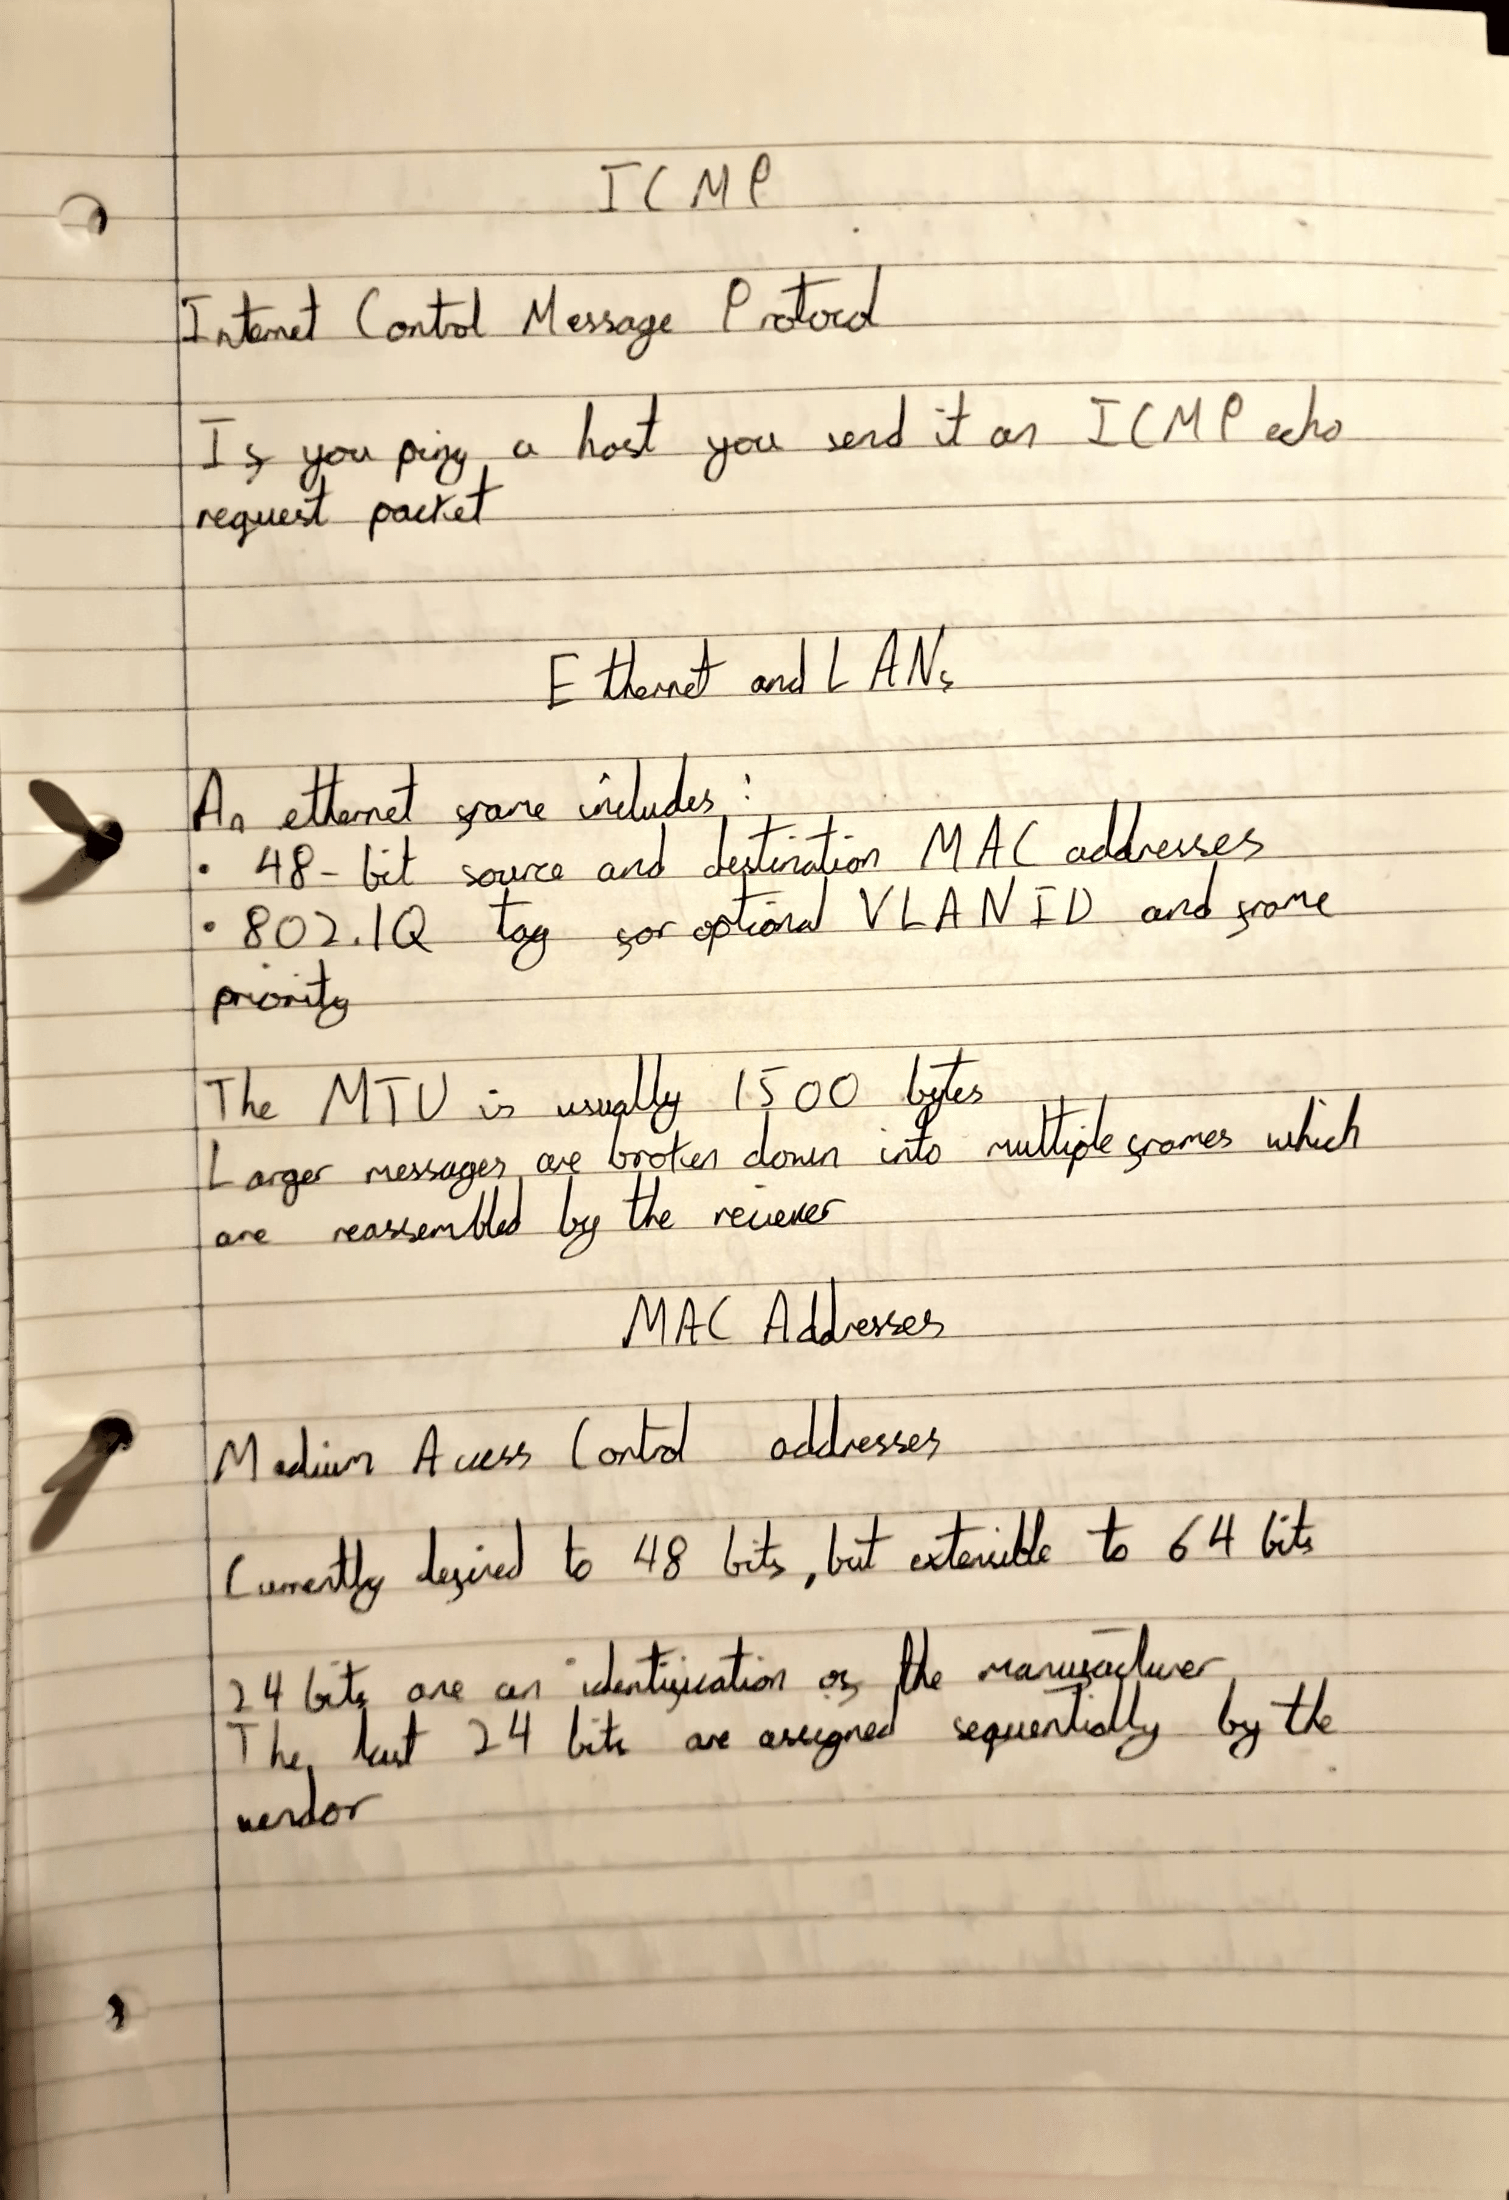 ICMP
Internet Control Message Protocol
If you ping a host you send it an ICMP echo
request packet
Ethernet and LANs
An ethernet frame includes:
• 48-bit source and destination MAC addresses
• 802.1Q tag for optional VLAN ID and frame
priority
The MTU is usually 1500 bytes
Larger messages are broken down into multiple frames which
are reassembled by the reciever
MAC Addresses
Medium Access Control addresses
Currently defined to 48 bits, but extensible to 64 bits
24 bits are an identification of the manufacturer
The last 24 bits are assigned sequentially by the
vendor